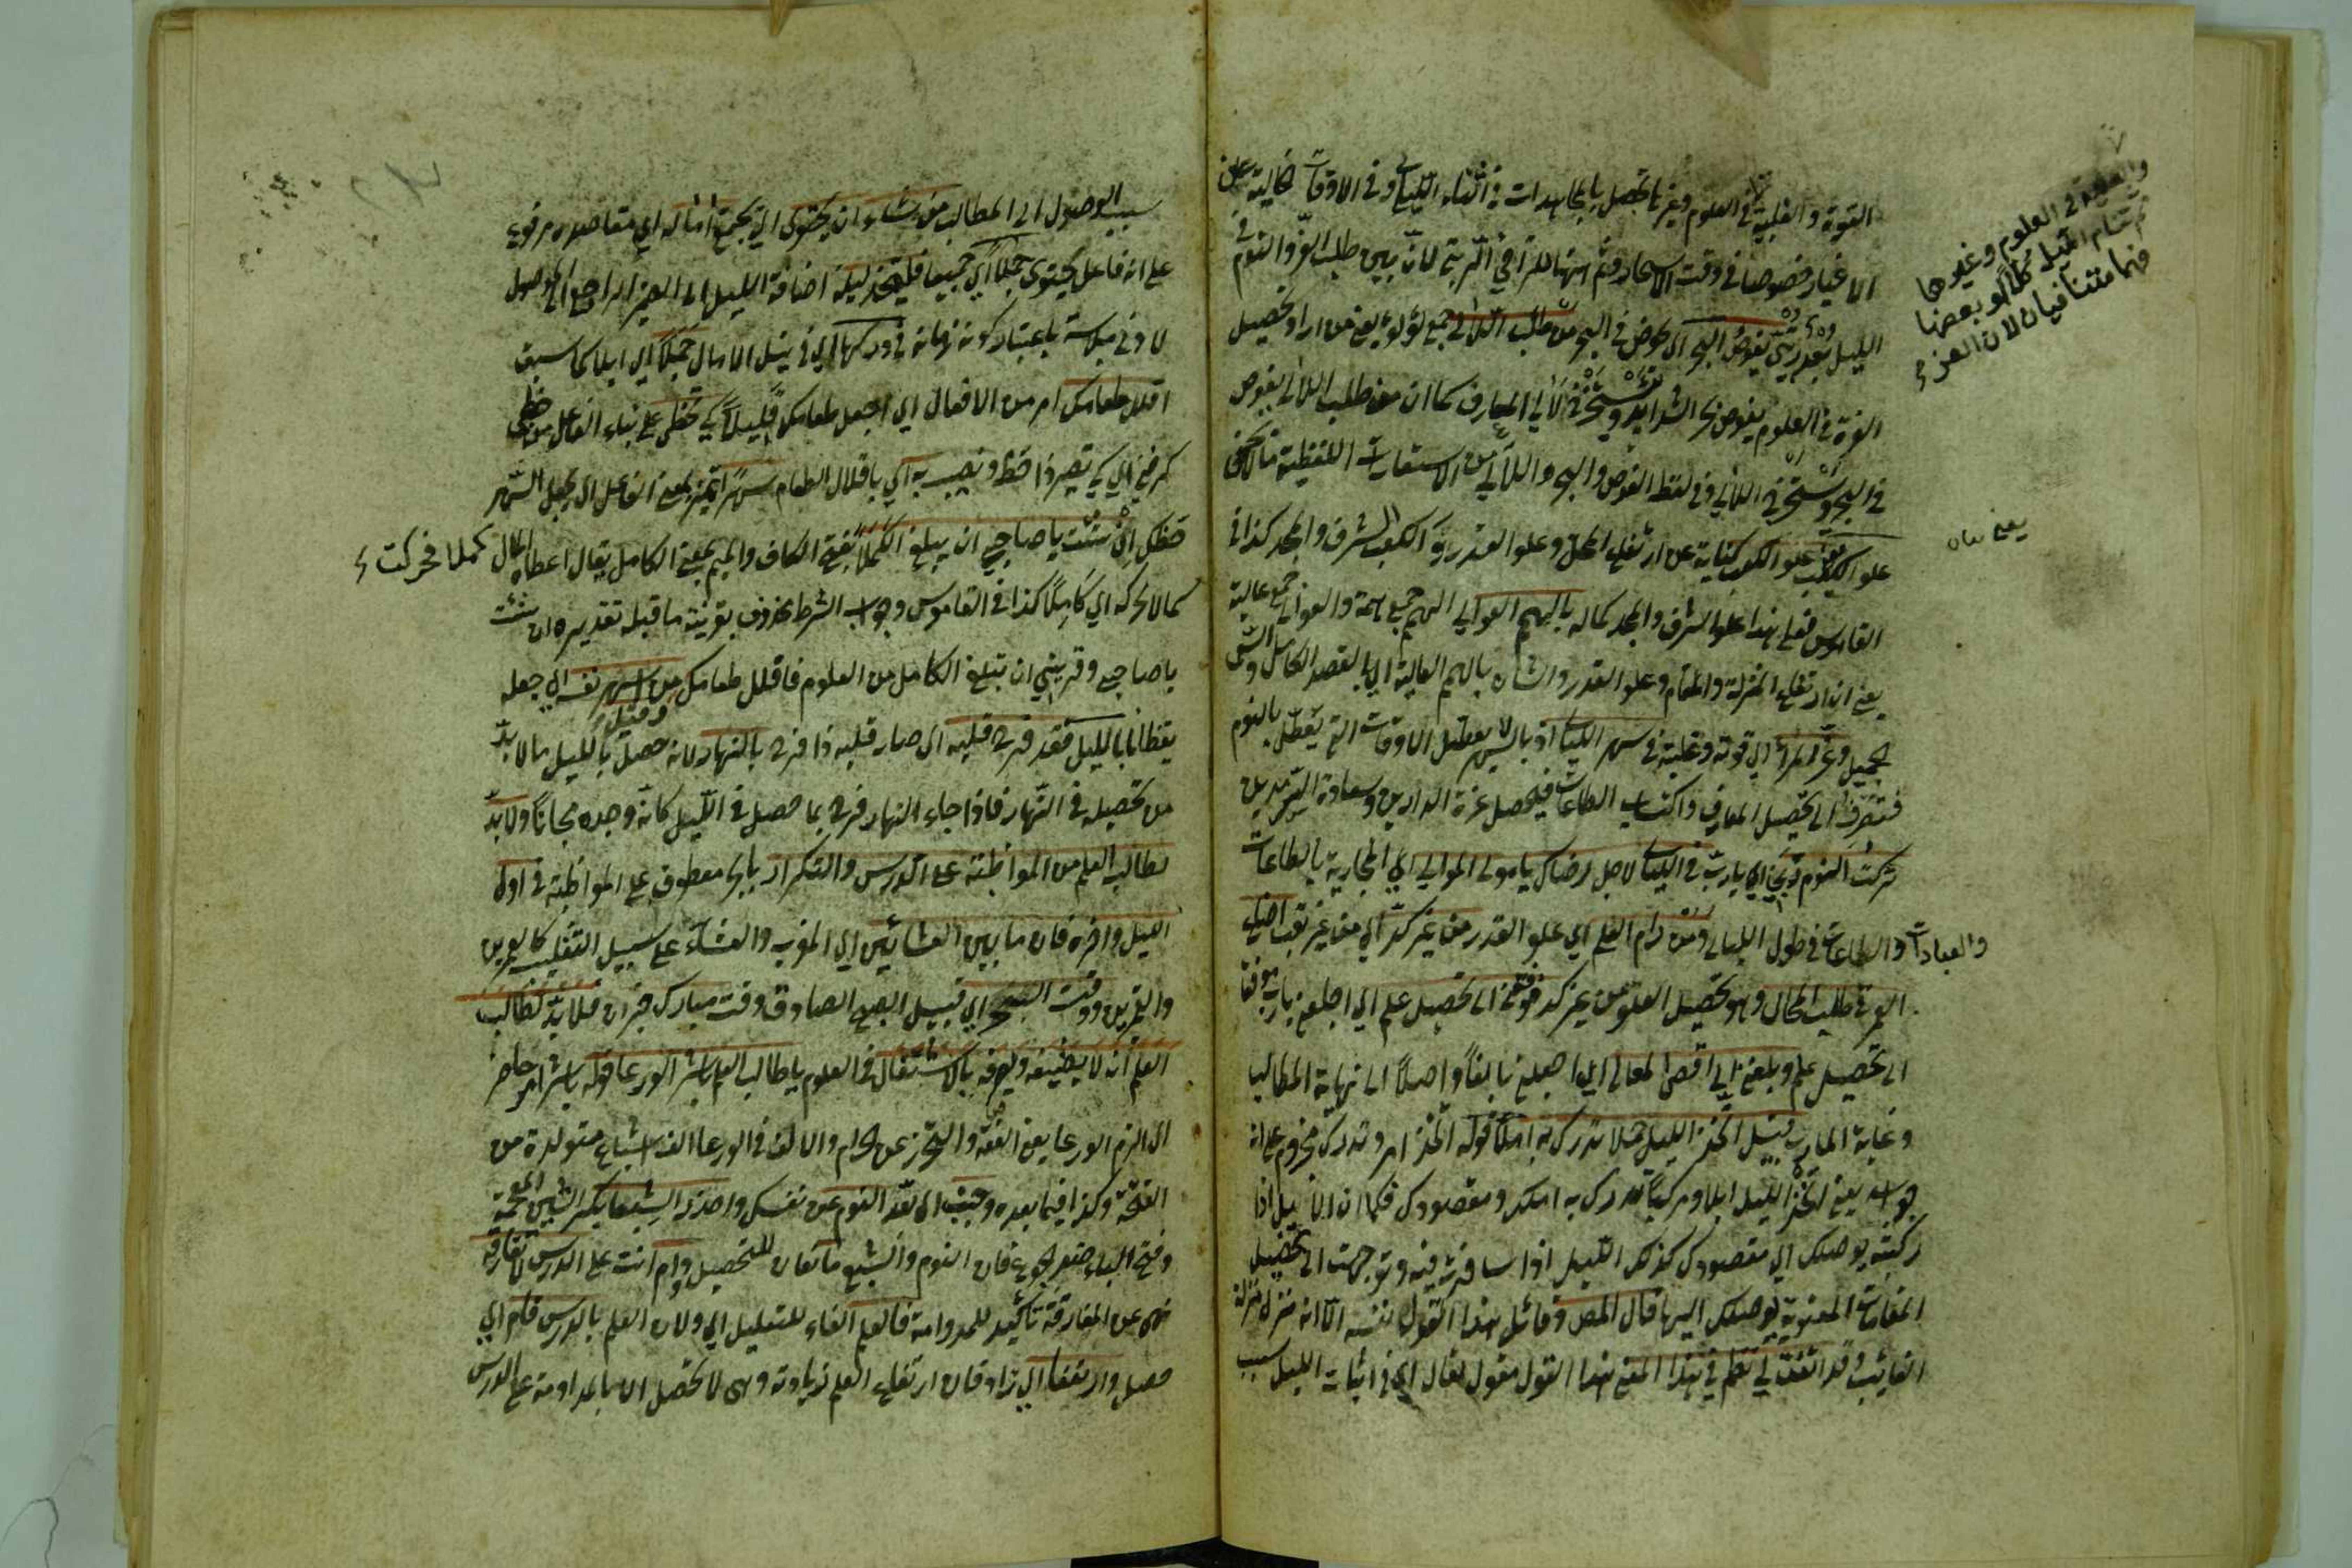 القوة والغلبة في العلوم وغيرها تحصل بالمجاهدات في أثناء الليالي وفي الاوقات خالية عن
الاغيار خصوصا في وقت الاسحار ثم تنام ليلا لأن بين طلب العز والنوم في
الليل بعد يغوص البحر اي يخوض في البحر من طلب اللآلي جمع لؤلؤ يعني من اراد تحصيل
العزة في العلوم يغوص بحر الشدايد في لآلي المعارف كما ان من طلب اللآلي يغوص
في البحر في اللآلي وفي لفظ الغوص والبحر واللآلي من الاستعارات اللفظية ما لا يخفى
علو الكعب يعني علو الكعب كناية عن ارتفاع المحل وعلو القدر والكعب الشرف والمجد كذا في
القاموس فعلى هذا علو الشرف والمجد كماله بالهمم العوالي الهمم جمع همة والعوالي جمع عالية
يعني ان ارتفاع المنزلة والمقام وعلو القدر والشان بالهمم العالية اي بالقصد الكامل والسعي
الجميل وعز المرء اي قوته وغلبته في سهر الليالي اذ بالسهر لا يعطل الاوقات التي يعطل بالنوم
فتصرف الى تحصيل المعارف واكتساب الطاعات فيحصل عزة الدارين وسعادة
تركت النوم ربي اي يا رب في الليالي لاجل رضاك يا مولى الموالي اي بالطاعات
والعبادات والطاعات في طول الليالي ومن رام العلى اي علو القدر من غير كد اي من غير تعب اضاع
العمر في طلب المحال وهو تحصيل العلو من غير كد فوفقني الى تحصيل علم اي اجعلني يا رب موفقا
الى تحصيل علم وبلغني الى اقصى المعالي اي اجعلني بالغا واصلا الى نهاية المطالب
وغاية المآرب قيل اتخذ الليل جملا تدرك به املا قوله اتخذ امر وتدرك مجزوم على انه
جوابه يعني اتخذ الليل ابلا ومركبا تدرك به املك ومقصودك فكما ان الابيل اذا
ركبته يوصلك الى مقصودك كذلك الليل اذا سافرت فيه وتوجهت الى تحصيل
المقامات المعنوية يوصلك اليها قال المص وقائل هذا القول نفسه الا انه منزله منزلة
الغائب وقد اتفق لي نظم في هذا المعنى هذا القول مقول لقال اي في اثبات الليل سبب
والغلبة في العلوم وغيرها
ثم تنام الليل كلا او بعضا
فهما متنافيان لان العز
يعني
سبب الوصول الى المطالب من شاء ان يحتوي اي يجمع آماله اي مقاصده مرفوع
على انه فاعل يحتوي جملا اي جميعا فليتخذ ليله اضافة الليل الى الضمير الراجع الى الموصول
لادنى ملابسة باعتبار كونه زمانه في دركها اي في نيل الامال جملا اي ابلا كما سبق
اقلل طعامك امر من الافعال اي اجعل طعامك قليلا كي تحظى على بناء الفاعل من حظي
كرضي اي كي تصير ذا حظ ونصيب به اي باقلال الطعام سهرا تمييز بمعنى الفاعل اي يجعل السهر
حظك ان شئت يا صاحبي ان تبلغ الكملا بفتح الكاف والميم بمعنى الكامل يقال اعطاه المال كملا محركة
كمالا محركة اي كاملا كذا في القاموس وجواب الشرط محذوف بقرينة ما قبله تقديره ان شئت
يا صاحبي وقريني ان تبلغ الكامل من العلوم فاقلل طعامك وقيل من اسهر نفسه اي جعله
يقظانا بالليل فقد فرح قلبه اي صار قلبه ذا فرح بالنهار لانه حصل بالليل ما لا بد
من تحصيله في النهار فاذا جاء النهار فرح بما حصل في الليل كانه وجده مجانا ولا بد
لطالب العلم من المواظبة على الدرس والتكرار بالجر معطوف على المواظبة في اول
الليل وآخره فان ما بين العشائين اي المغرب والعشاء على سبيل التغليب كالعمرين
والقمرين ووقت السحر اي قبيل الصبح الصادق وقت مبارك خبر ان فلا بد لطالب
العلم ان لا يضيعه ويصرفه بالاشتغال في العلوم يا طالب العلم باشر الورعا قوله باشر امر حاضر
اي الزم الورعا يعني العفة والتحرز عن الحرام والالف في الورعا الف اشباع متولدة من
الفتحة وكذا فيما بعده وجنب اي بعد النوم عن نفسك واحذر الشبعا بكسر الشين المعجمة
وفتح الباء ضد الجوع فان النوم والشبع مانعان للتحصيل وادم انت على الدرس لا تفارقه
نهى عن المفارقة تأكيد للمداومة فالعلم الفاء للتعليل اي ولان العلم بالدرس قام اي
حصل وارتفعا اي زاد فان ارتفاع العلم زيادته وهي لا تحصل الا بالمداومة على الدرس